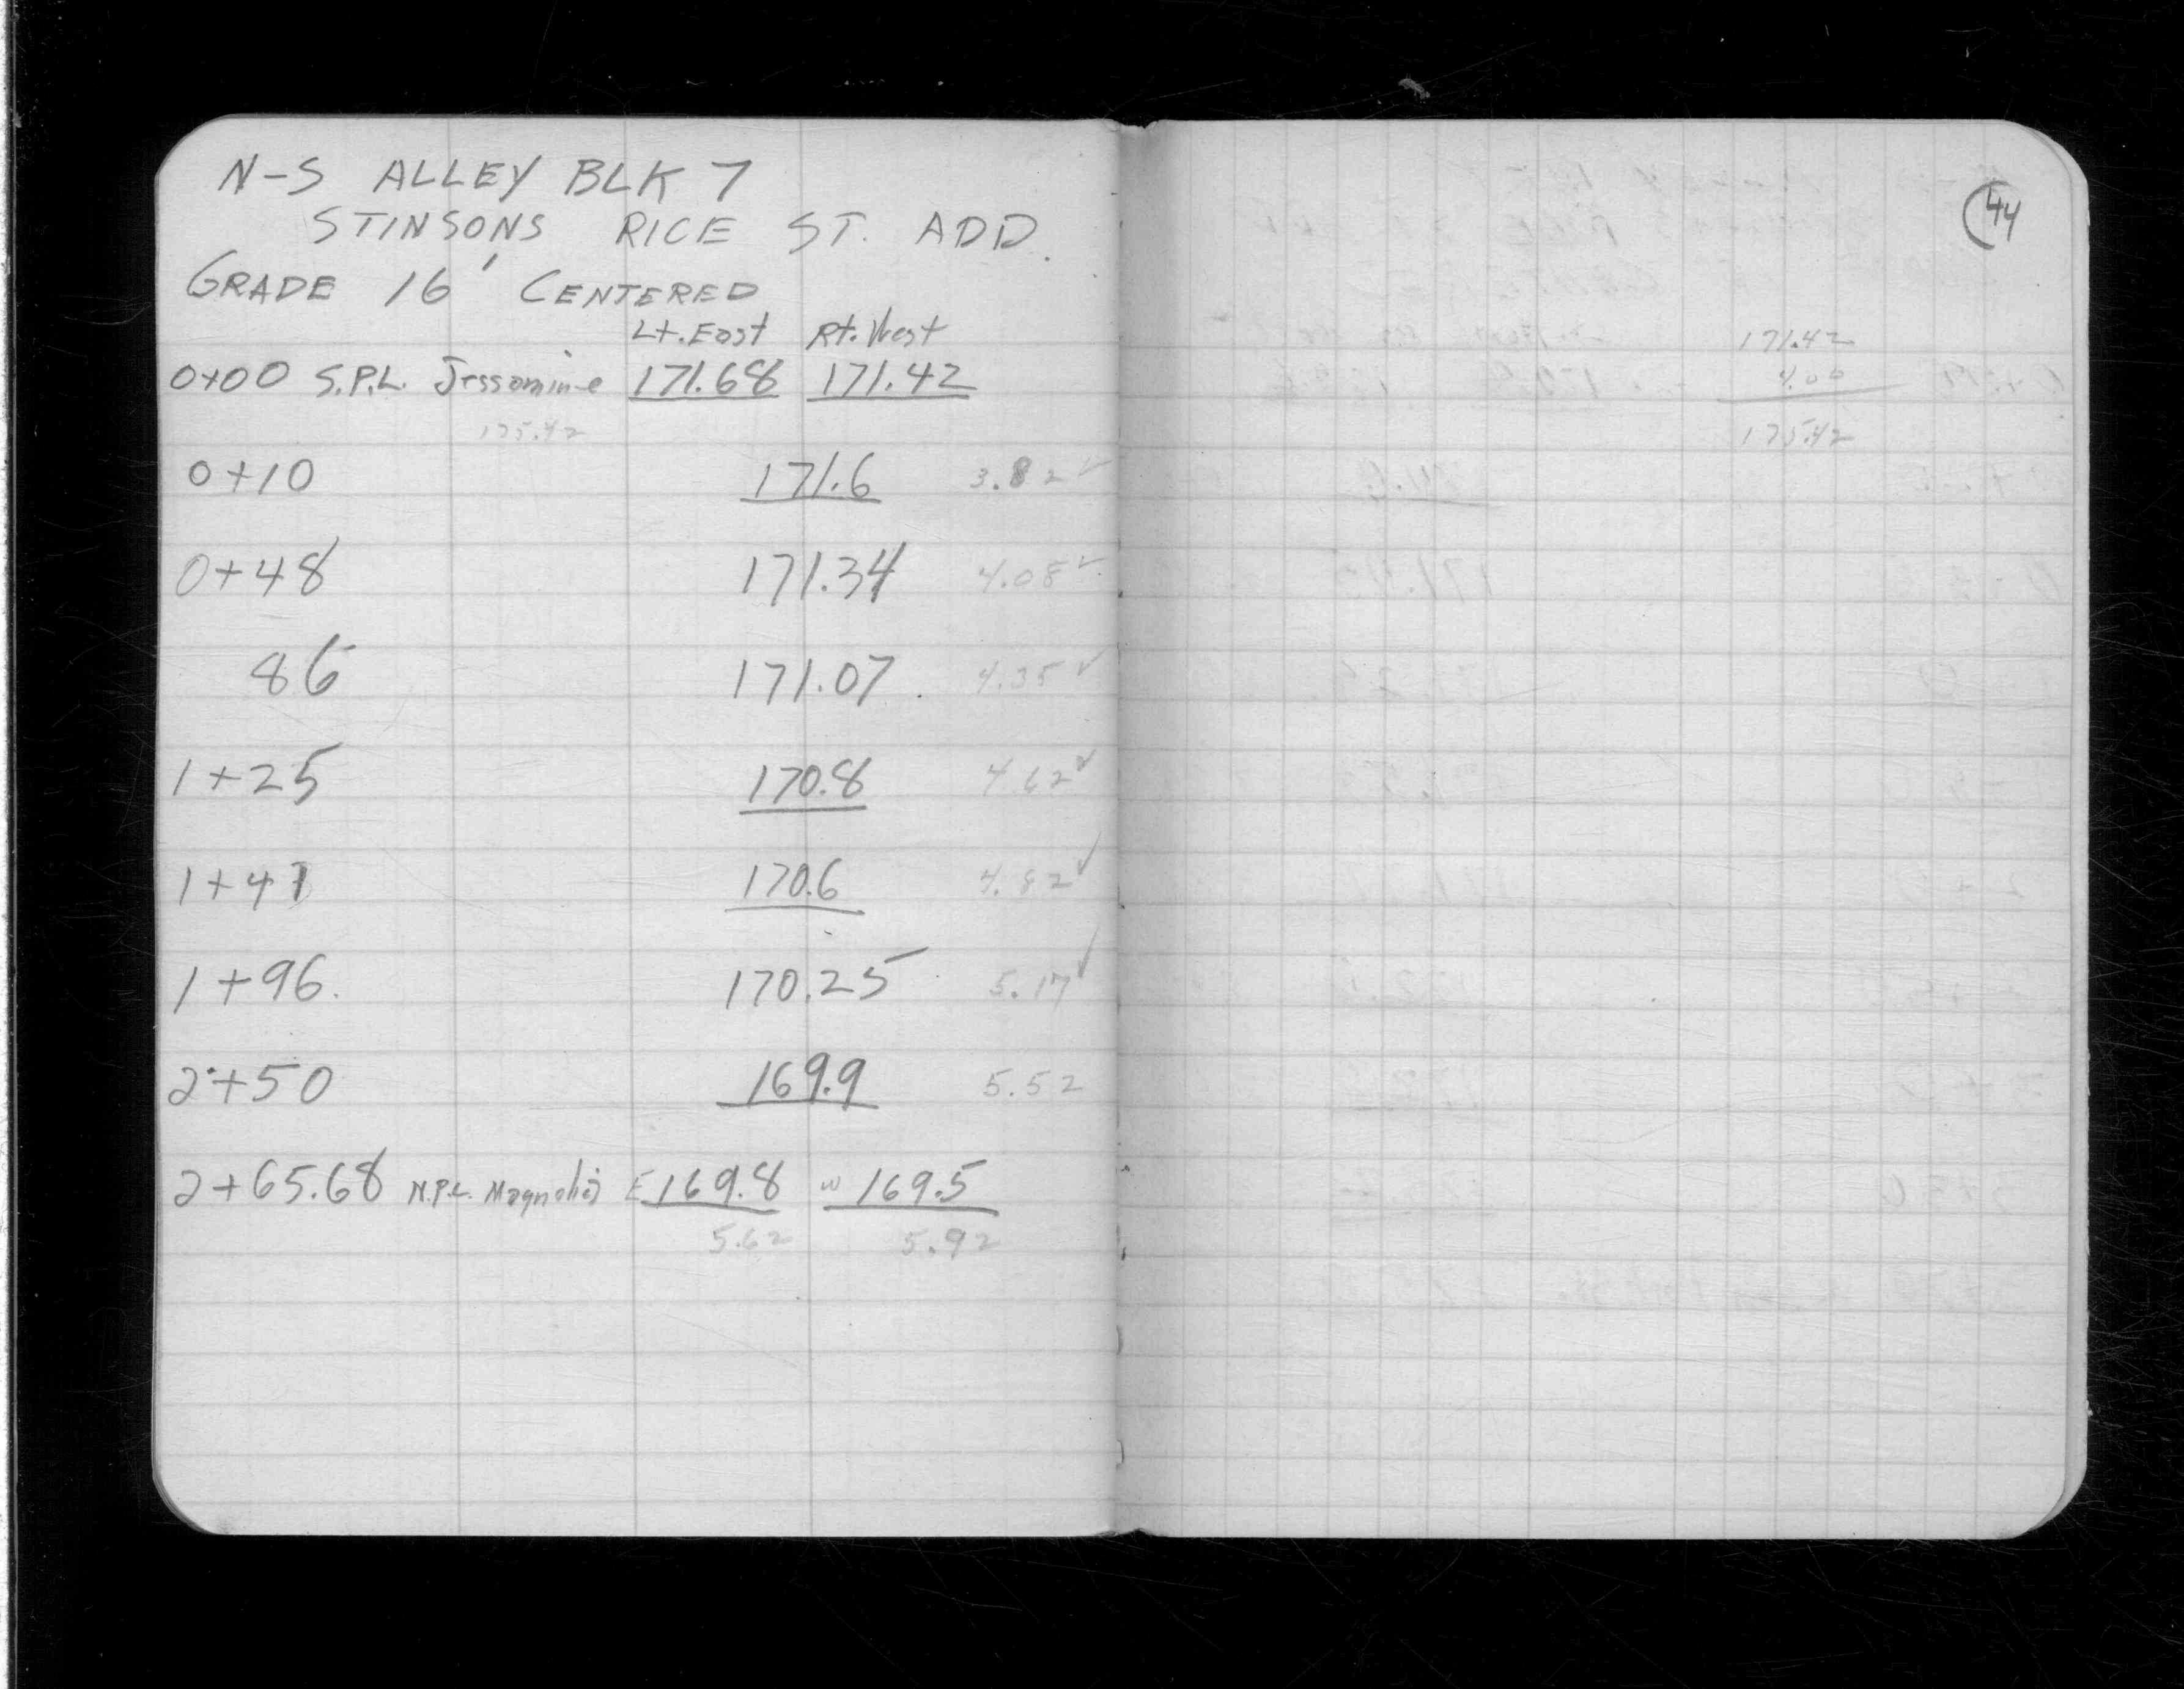 N-S ALLEY BLK 7
STINSONS RICE ST. ADD.
GRADE 16' CENTERED
Lt. East Rt. West
0+00 S.P.L. Jessamine 171.68 171.42
175.42
0+10 171.6 3.82 ✓
0+48 171.34 4.08 ✓
86 171.07 4.35 ✓
1+25 170.8 4.62 ✓
1+41 170.6 4.82 ✓
1+96. 170.25 5.17 ✓
2+50 169.9 5.52
2+65.68 N.P.L. Magnolia E 169.8 W 169.5
5.62 5.92
44
171.42
4.00
175.42